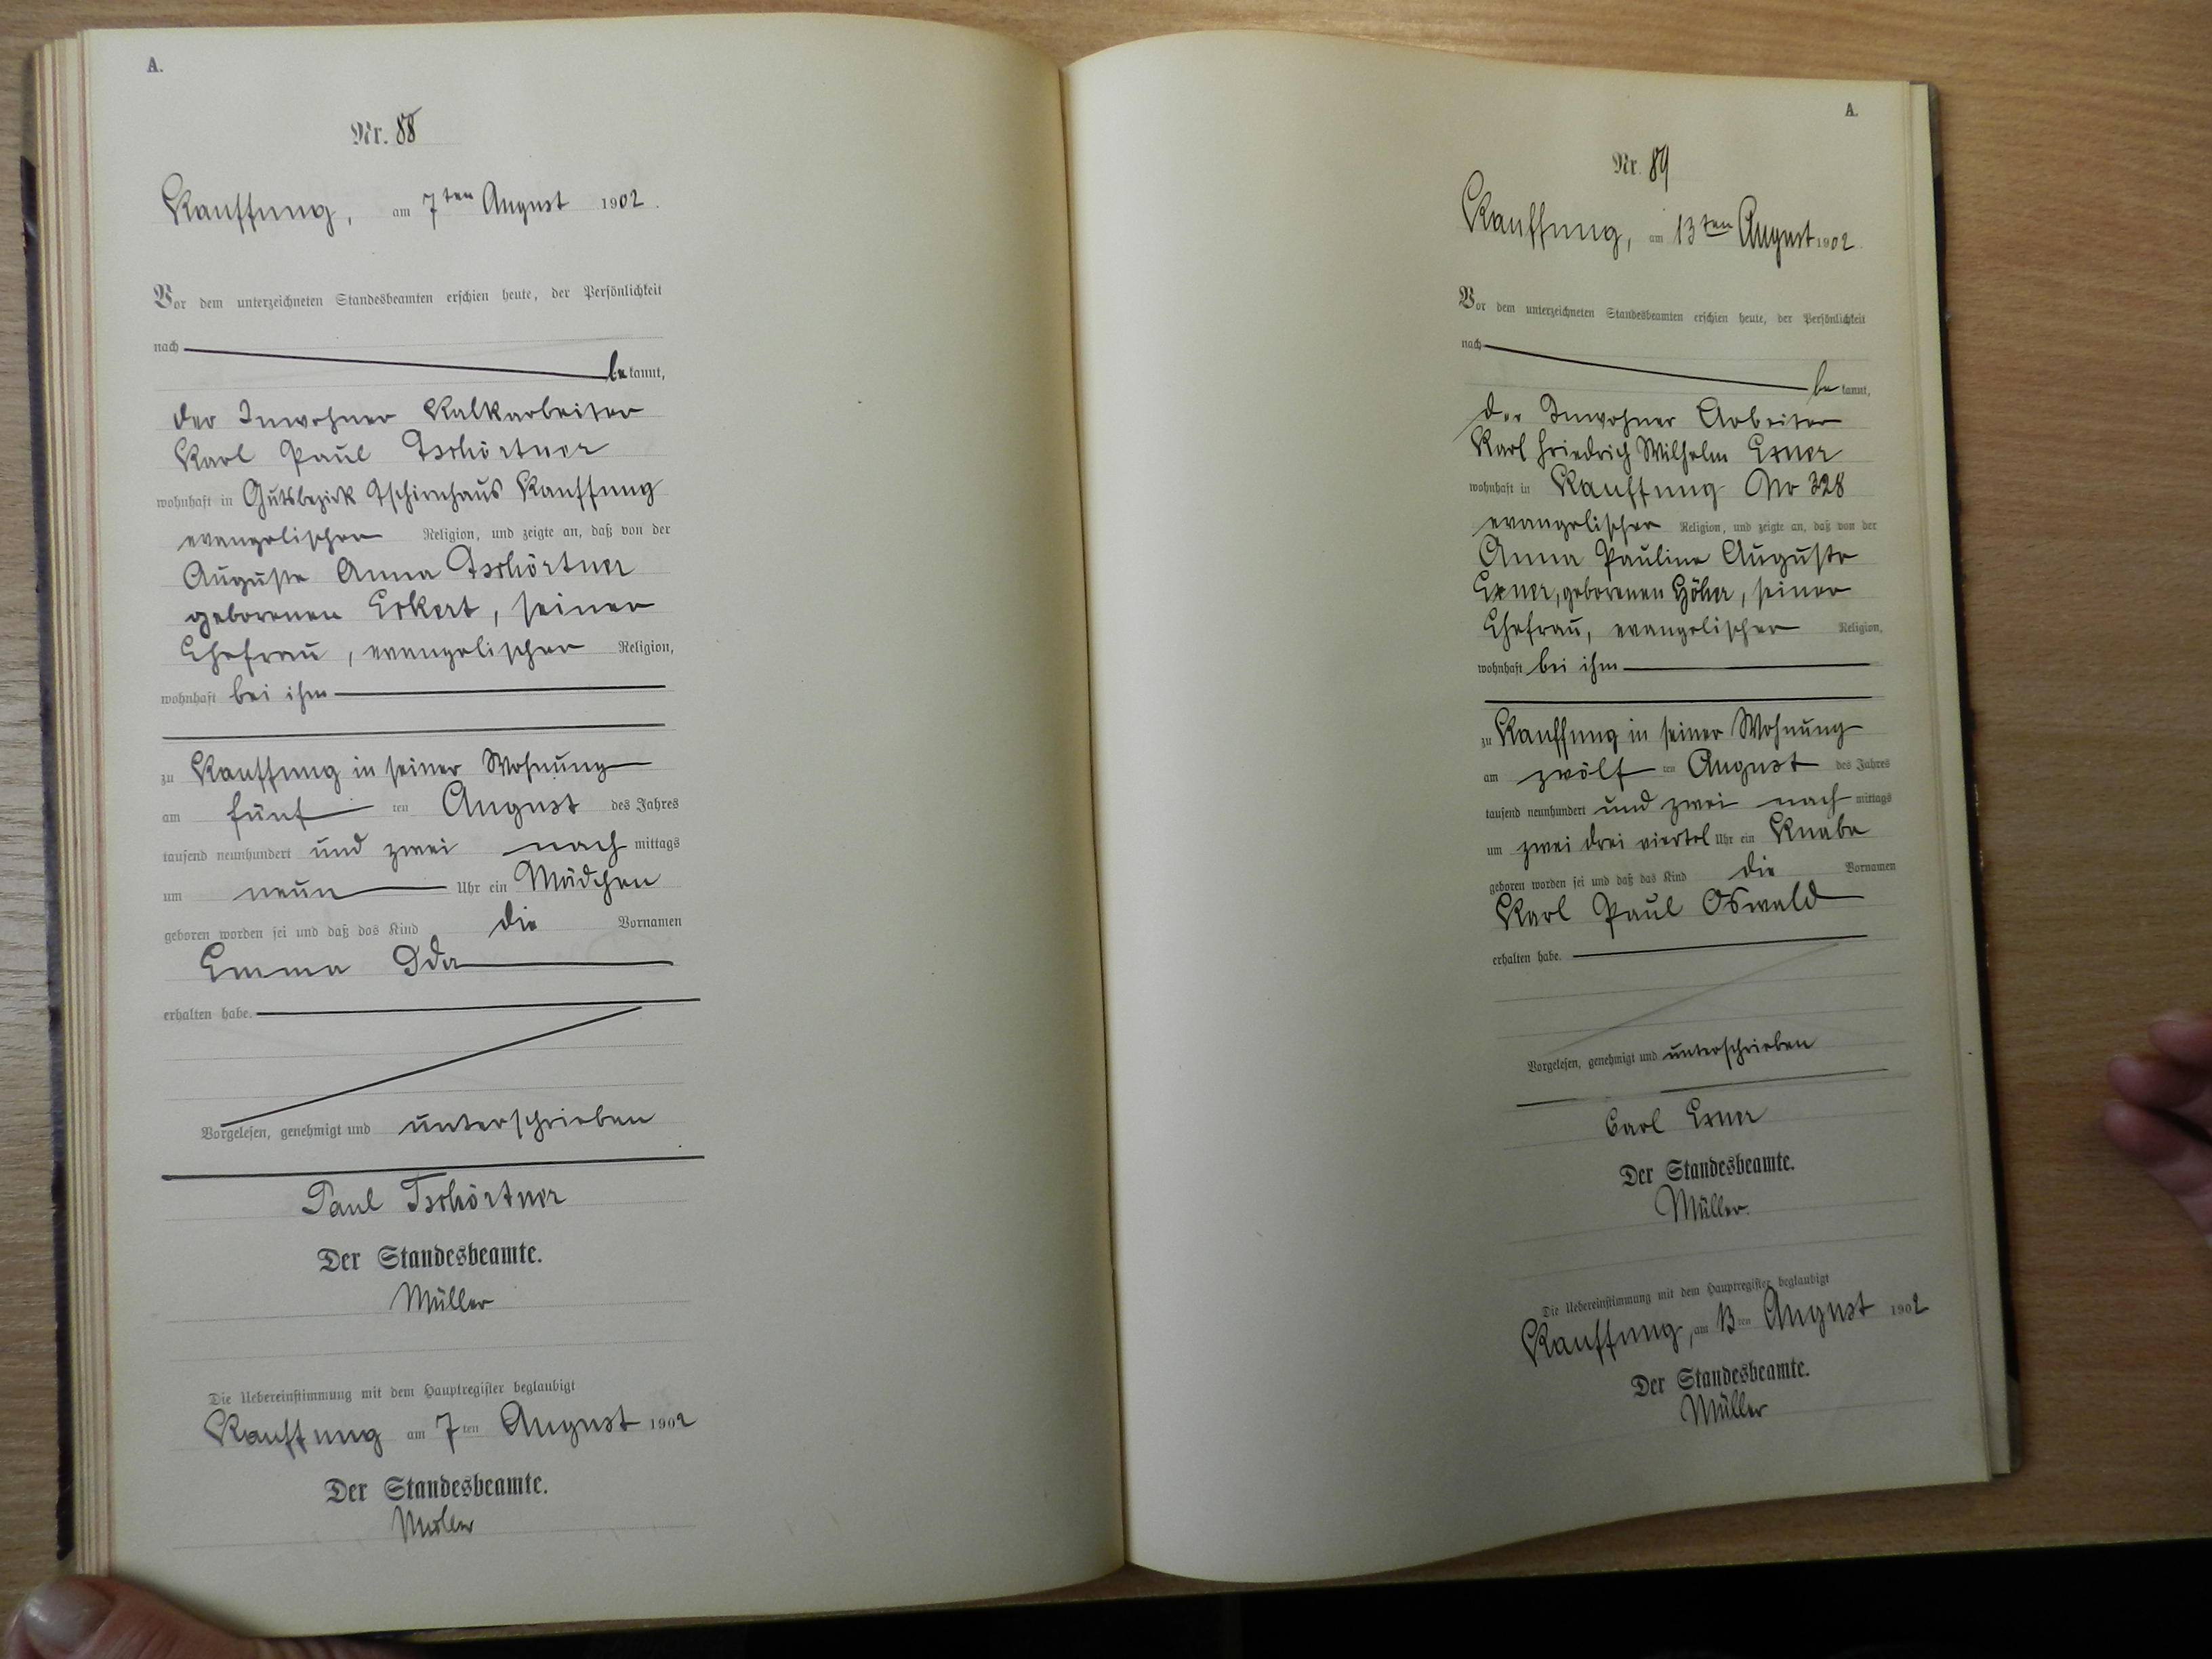 A.
Nr. 88
Kauffung, am 7ten August 1902.
Vor dem unterzeichneten Standesbeamten erschien heute, der Persönlichkeit
nach
bekannt,
der Inwohner Kalkarbeiter
Karl Paul Tschörtner
wohnhaft in Gutsbezirk Tschirnhaus Kauffung
evangelischer Religion, und zeigte an, daß von der
Auguste Anna Tschörtner
geborenen Eckert, seiner
Ehefrau, evangelischer Religion,
wohnhaft bei ihm
zu Kauffung in seiner Wohnung
am fünf ten August des Jahres
tausend neunhundert und zwei nach mittags
um neun Uhr ein Mädchen
geboren worden sei und daß das Kind die Vornamen
Emma Ida
erhalten habe.
Vorgelesen, genehmigt und unterschrieben
Paul Tschörtner
Der Standesbeamte.
Müller
Die Uebereinstimmung mit dem Hauptregister beglaubigt
Kauffung am 7ten August 1902
Der Standesbeamte.
Müller
A.
Nr. 89
Kauffung, am 13ten August 1902.
Vor dem unterzeichneten Standesbeamten erschien heute, der Persönlichkeit
nach
bekannt,
der Inwohner Arbeiter
Karl Friedrich Wilhelm Exner
wohnhaft in Kauffung No 328
evangelischer Religion, und zeigte an, daß von der
Anna Pauline Auguste
Exner, geborenen seiner
Ehefrau, evangelischer Religion,
wohnhaft bei ihm
zu Kauffung in seiner Wohnung
am zwölf ten August des Jahres
tausend neunhundert und zwei nach mittags
um zwei drei viertel Uhr ein Knabe
geboren worden sei und daß das Kind die Vornamen
Karl Paul Oswald
erhalten habe.
Vorgelesen, genehmigt und unterschrieben
Carl Exner
Der Standesbeamte.
Müller.
Die Uebereinstimmung mit dem Hauptregister beglaubigt
Kauffung, am 13ten August 1902
Der Standesbeamte.
Müller